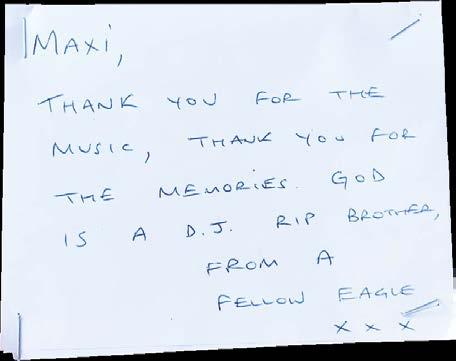 MAXI,
THANK YOU FOR THE
MUSIC, THANK YOU FOR
THE MEMORIES. GOD
IS A D.J. RIP BROTHER,
FROM A
FELLOW EAGLE
X X X